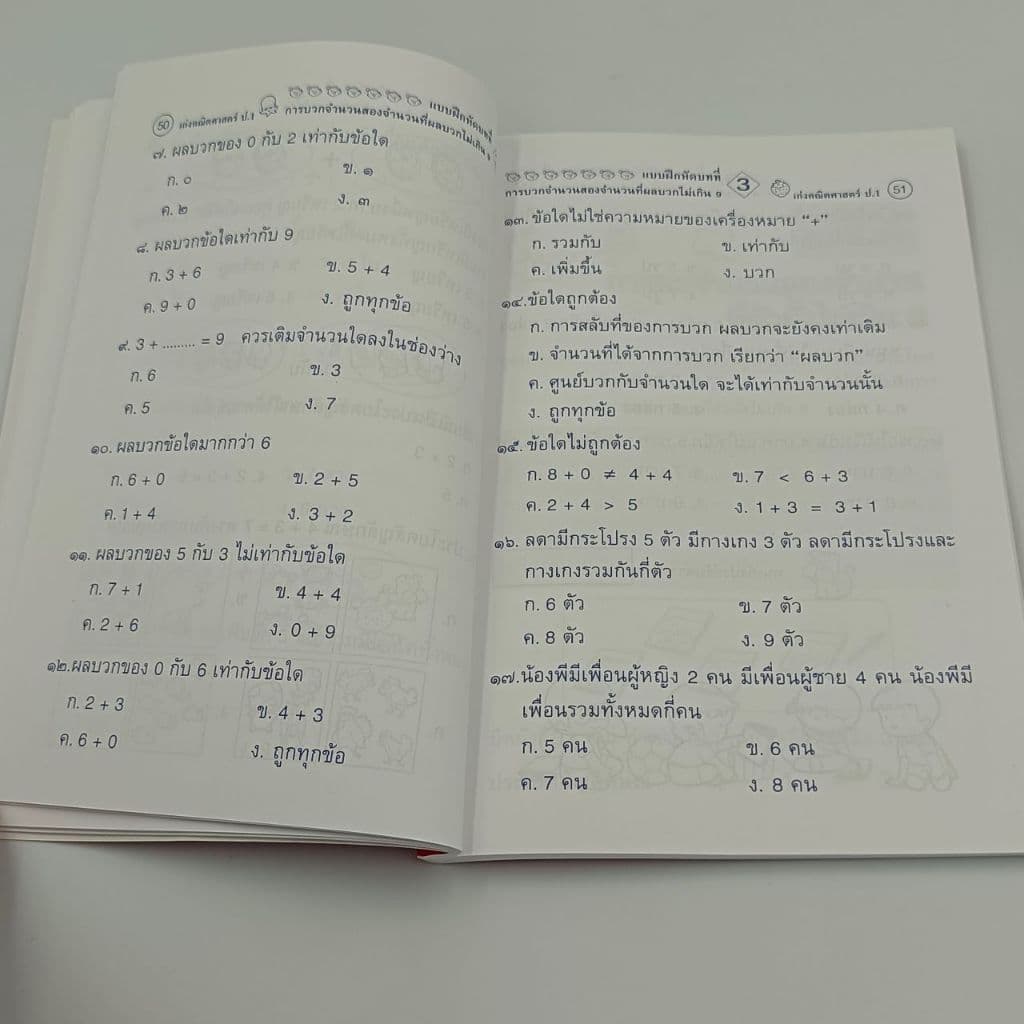 50 เก่งคณิตศาสตร์ ป.1 แบบฝึกหัดบทที่
การบวกจำนวนสองจำนวนที่ผลบวกไม่เกิน ๙
๗. ผลบวกของ 0 กับ 2 เท่ากับข้อใด
ก. ๐ ข. ๑
ค. ๒ ง. ๓
๘. ผลบวกข้อใดเท่ากับ 9
ก. 3 + 6 ข. 5 + 4
ค. 9 + 0 ง. ถูกทุกข้อ
๙. 3 + ......... = 9 ควรเติมจำนวนใดลงในช่องว่าง
ก. 6 ข. 3
ค. 5 ง. 7
๑๐. ผลบวกข้อใดมากกว่า 6
ก. 6 + 0 ข. 2 + 5
ค. 1 + 4 ง. 3 + 2
๑๑. ผลบวกของ 5 กับ 3 ไม่เท่ากับข้อใด
ก. 7 + 1 ข. 4 + 4
ค. 2 + 6 ง. 0 + 9
๑๒.ผลบวกของ 0 กับ 6 เท่ากับข้อใด
ก. 2 + 3 ข. 4 + 3
ค. 6 + 0 ง. ถูกทุกข้อ
แบบฝึกหัดบทที่ 3
การบวกจำนวนสองจำนวนที่ผลบวกไม่เกิน ๙ เก่งคณิตศาสตร์ ป.1 51
๑๓. ข้อใดไม่ใช่ความหมายของเครื่องหมาย “+”
ก. รวมกับ ข. เท่ากับ
ค. เพิ่มขึ้น ง. บวก
๑๔.ข้อใดถูกต้อง
ก. การสลับที่ของการบวก ผลบวกจะยังคงเท่าเดิม
ข. จำนวนที่ได้จากการบวก เรียกว่า “ผลบวก”
ค. ศูนย์บวกกับจำนวนใด จะได้เท่ากับจำนวนนั้น
ง. ถูกทุกข้อ
๑๕. ข้อใดไม่ถูกต้อง
ก. 8 + 0 ≠ 4 + 4 ข. 7 < 6 + 3
ค. 2 + 4 > 5 ง. 1 + 3 = 3 + 1
๑๖. ลดามีกระโปรง 5 ตัว มีกางเกง 3 ตัว ลดามีกระโปรงและ
กางเกงรวมกันกี่ตัว
ก. 6 ตัว ข. 7 ตัว
ค. 8 ตัว ง. 9 ตัว
๑๗.น้องพีมีเพื่อนผู้หญิง 2 คน มีเพื่อนผู้ชาย 4 คน น้องพีมี
เพื่อนรวมทั้งหมดกี่คน
ก. 5 คน ข. 6 คน
ค. 7 คน ง. 8 คน